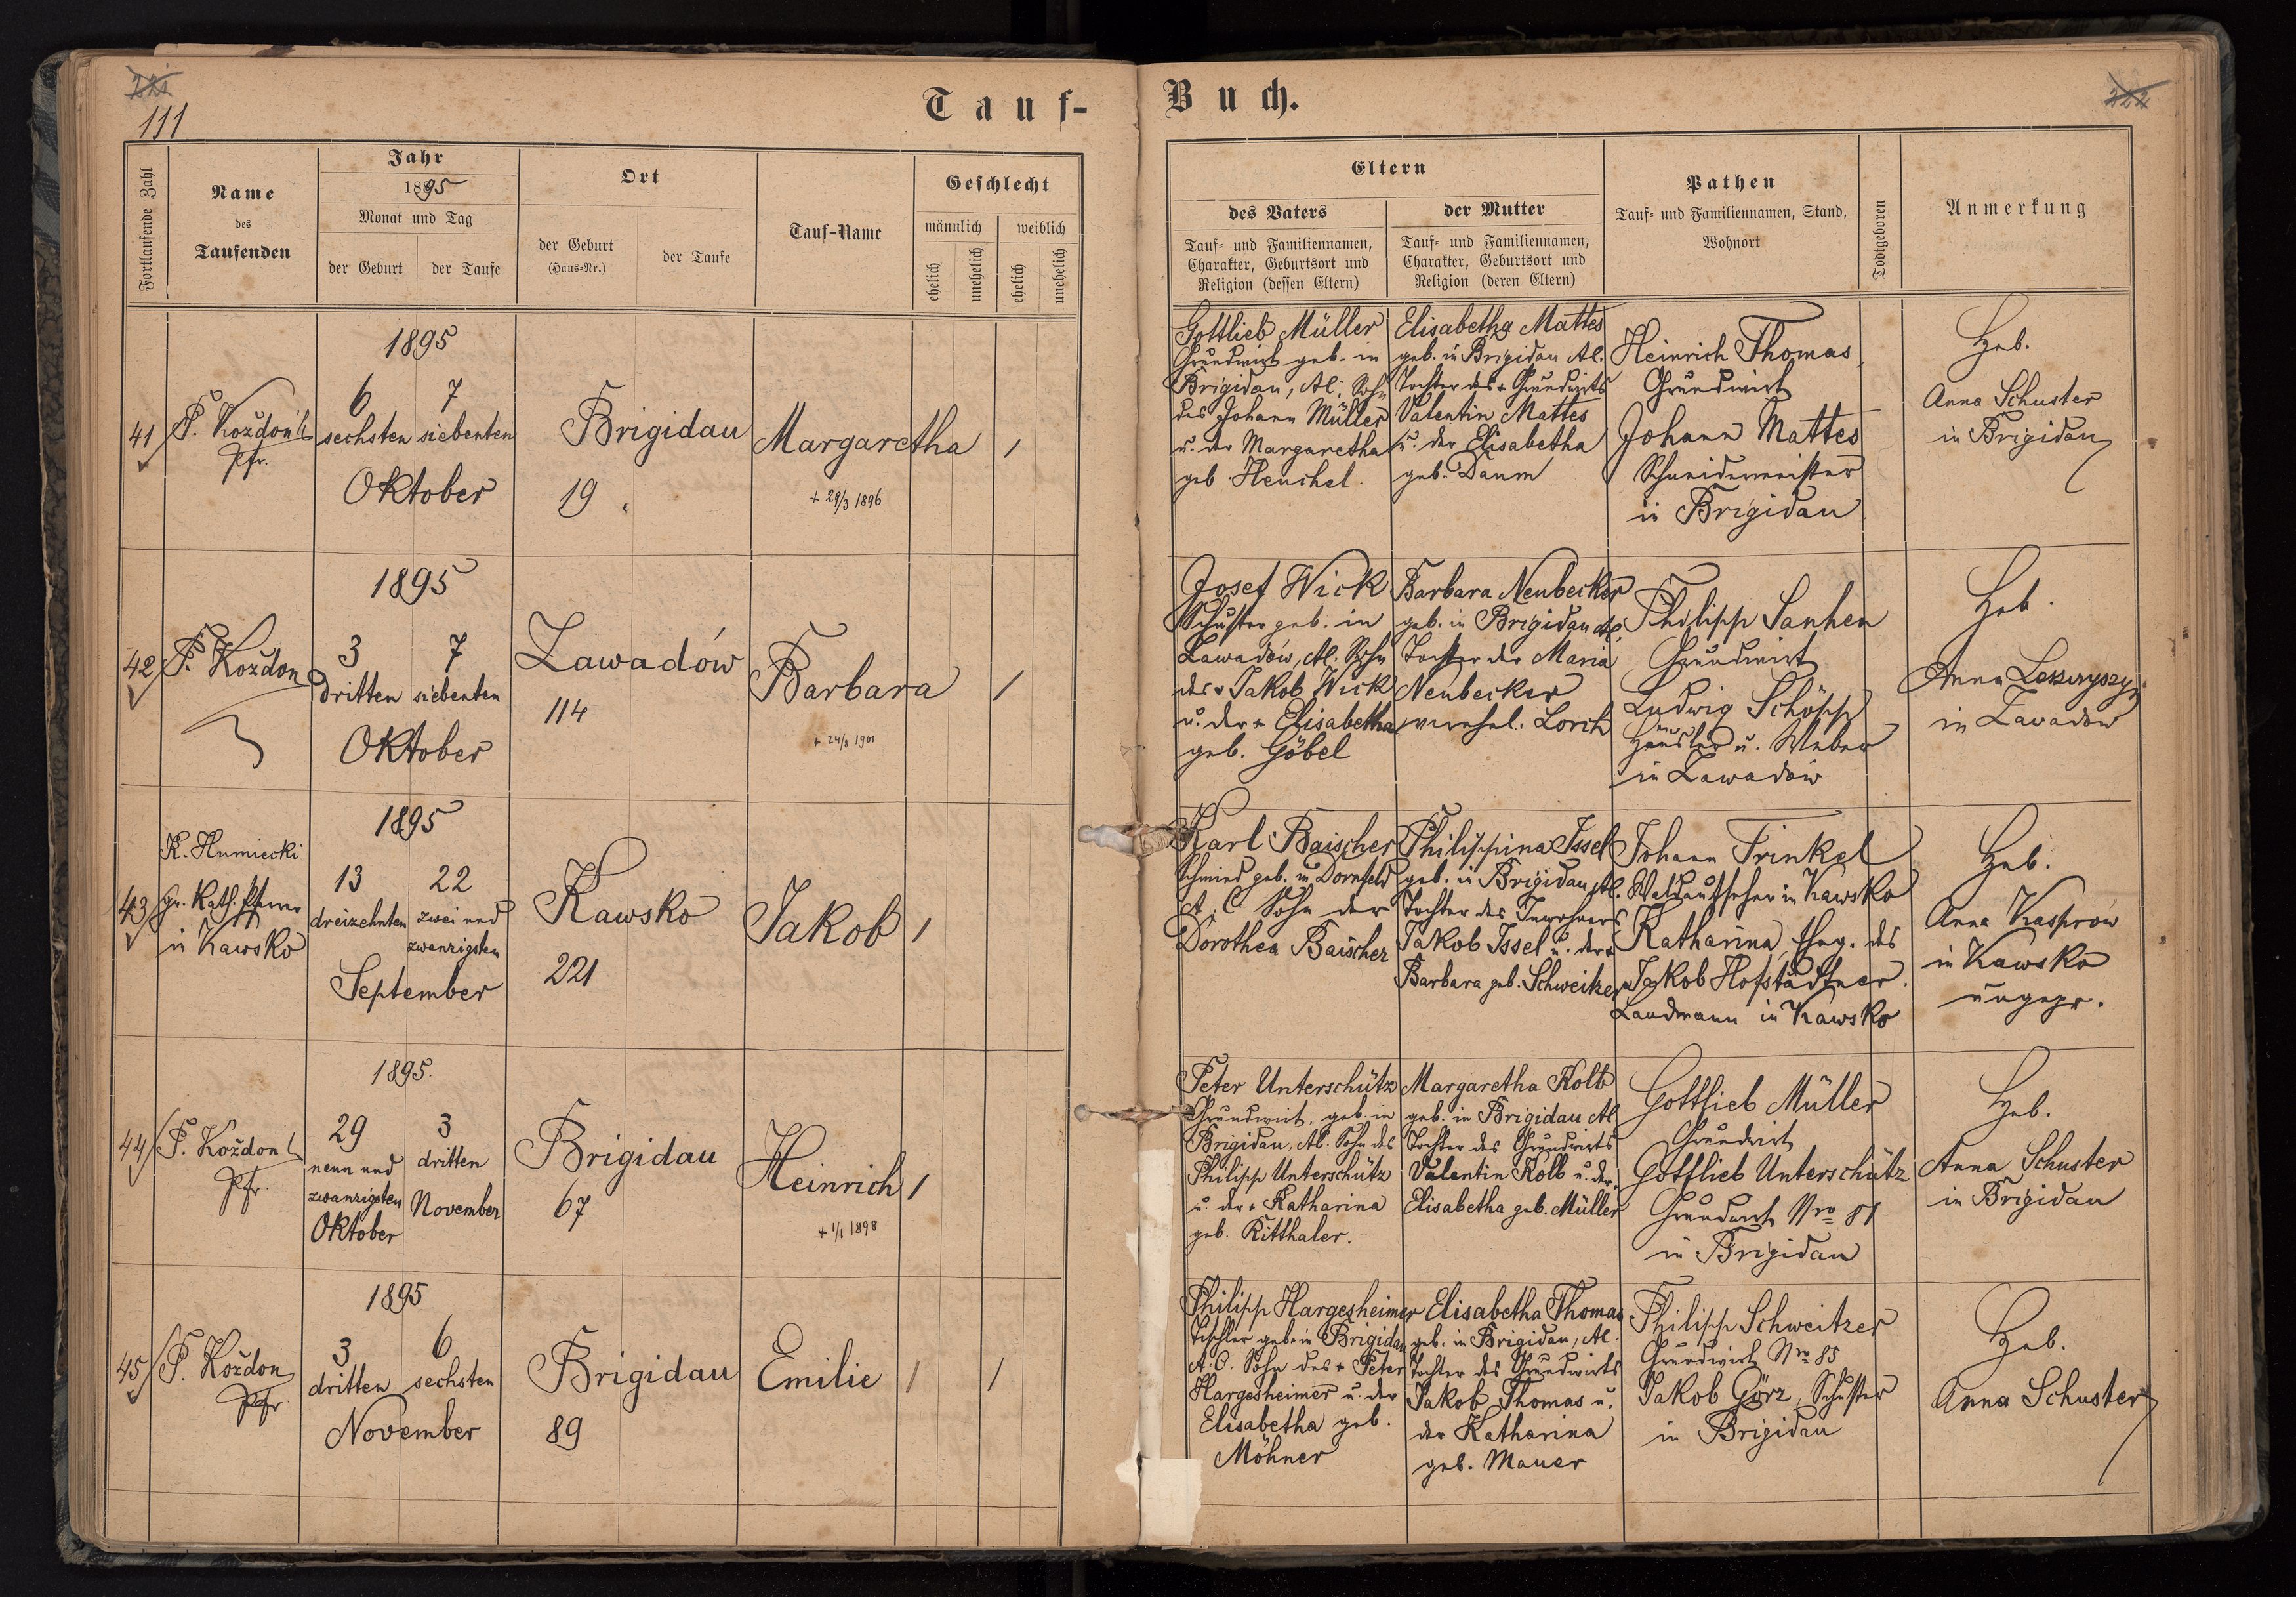 111
Tauf-
Buch.
Fortlaufende Zahl
Name
des
Taufenden
Jahr
1895
Monat und Tag
der Geburt
der Taufe
Ort
der Geburt
(Haus-Nr.)
der Taufe
Tauf-Name
Geschlecht
männlich
weiblich
ehelich
unehelich
ehelich
unehelich
Eltern
des Vaters
Tauf- und Familiennamen,
Charakter, Geburtsort und
Religion (dessen Eltern)
der Mutter
Tauf- und Familiennamen,
Charakter, Geburtsort und
Religion (deren Eltern)
Pathen
Tauf- und Familiennamen, Stand,
Wohnort
Todtgeboren
Anmerkung
41
P. Koždoń
Pfr.
1895
6 7
sechsten siebenten
Oktober
Brigidau
19
Margaretha
+ 29/3 1896
1
Gottlieb Müller
Grundwirt geb. in
Brigidau, AC; Sohn
des Johann Müller
u. der Margaretha
geb. Henschel
Elisabetha Mattes
geb. in Brigidau AC.
Tochter des + Grundwirts
Valentin Mattes
u. der Elisabetha
geb. Daum
Heinrich Thomas
Grundwirt
Johann Mattes
Schneidermeister
in Brigidau
Heb.
Anna Schuster
in Brigidau
42
P. Koždoń
1895
3 7
dritten siebenten
Oktober
Zawadów
114
Barbara
1
Josef Wick
Schuster geb. in
Zawadów, AC. Sohn
des + Jakob Wick
u. der + Elisabetha
geb. Göbel
Barbara Neubecker
geb. in Brigidau AC.
Tochter der Maria
Neubecker
verehel. Lorch
Philipp Sanhen
Grundwirt
Ludwig Schöpp
Häusler u. Weber
in Zawadów
Heb.
Anna
in Zawadów
43
K. Humiecki
gr. kath. Pfarrer
in Kawsko
1895
13 22
dreizehnten zwei und
zwanzigsten
September
Kawsko
221
Jakob
1
Karl Baischer
Schmied geb. in Dornfeld
A. C. Sohn der
Dorothea Baischer
Philippina Issel
geb. in Brigidau AC.
Tochter des Inwohners
Jakob Issel u. der +
Barbara geb. Schweitzer
Johann Trinkel
Waldaufseher in Kawsko
Katharina, Ehg. des
Jakob Hofstädtner
Landmann in Kawsko
Heb.
Anna Kasprów
in Kawsko
ungepr.
44
P. Koždoń
Pfr.
1895.
29 3
neun und dritten
zwanzigsten November
Oktober
Brigidau
67
Heinrich
+ 1/1 1898
1
Peter Unterschütz
Grundwirt, geb. in
Brigidau, AC. Sohn des
Philipp Unterschütz
u. der + Katharina
geb. Ritthaler.
Margaretha Kolb
geb. in Brigidau AC
Tochter des Grundwirts
Valentin Kolb u. der
Elisabetha geb. Müller
Gottlieb Müller
Grundwirt
Gottlieb Unterschütz
Grundwirt Nro 81
in Brigidau
Heb.
Anna Schuster
in Brigidau
45
P. Koždoń
Pfr.
1895
3 6
dritten sechsten
November
Brigidau
89
Emilie
1 1
Philipp Hargesheimer
Tischler geb. in Brigidau
A. C. Sohn des + Peter
Hargesheimer u. der
Elisabetha geb.
Möhner
Elisabetha Thomas
geb. in Brigidau, AC.
Tochter des Grundwirts
Jakob Thomas u.
der Katharina
geb. Mauer
Philipp Schweitzer
Grundwirt Nro 85
Jakob Görz, Schuster
in Brigidau
Heb.
Anna Schuster